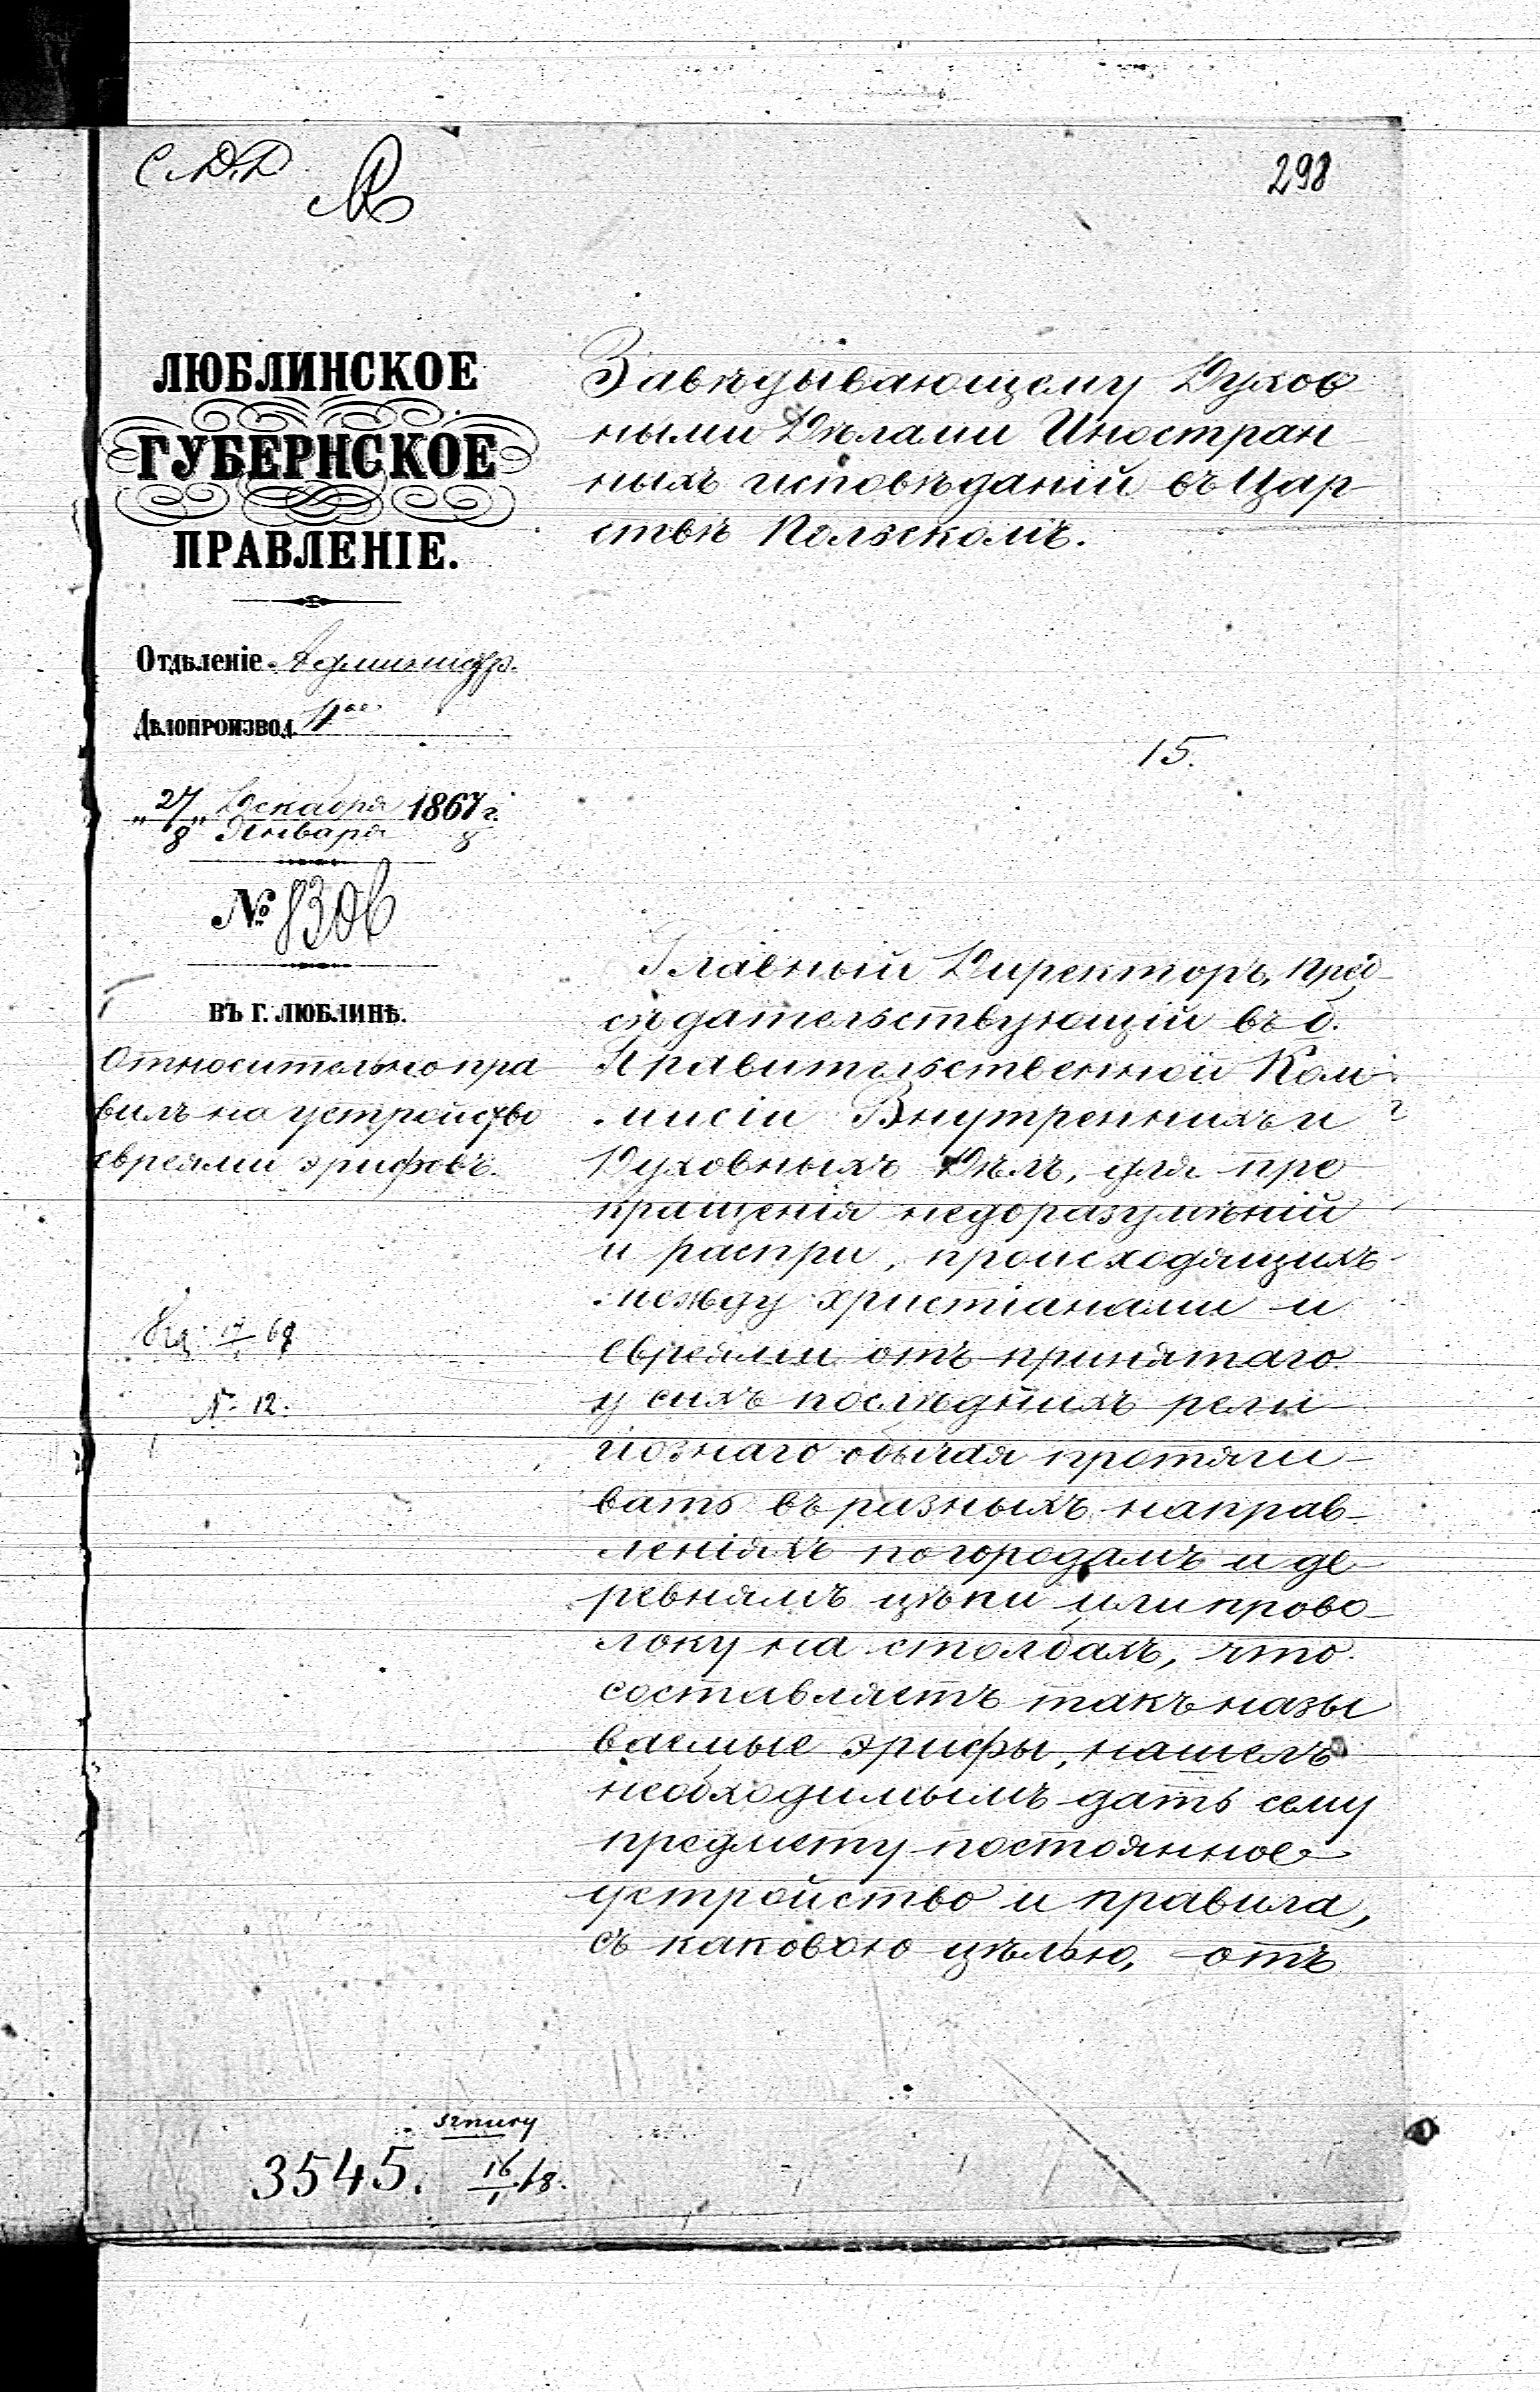 298
ЛЮБЛИНСКОЕ
ГУБЕРНСКОЕ
ПРАВЛЕНІЕ.
Отдѣленіе Администр.
Дѣлопроизвод.
„27/8„ Декабря/Января 1867/8 г.
№ 8306
ВЪ Г. ЛЮБЛИНѢ.
Относительно пра
вилъ на устройство
евреями эрифовъ.
17/1 68
№ 12.
Завѣдывающему Духов
ными Дѣлами Иностран
ныхъ исповѣданій въ Цар
ствѣ Польскомъ.
15.
Главный Директоръ, Пред-
сѣдательствующій въ б.
Правительственной Ком-
мисіи Внутреннихъ и
Духовныхъ Дѣлъ, для пре
кращенія недоразумѣній
и распри, происходящихъ
между христіанами и
евреями отъ принятаго
у сихъ послѣднихъ рели
гіознаго обычая протяги-
вать въ разныхъ направ-
леніяхъ по городамъ и де-
ревнямъ цѣпи или прово-
локу на столбахъ, что
составляетъ такъ назы
ваемые эрифы, нашелъ
необходимымъ дать сему
предмету постоянное
устройство и правила,
съ каковою цѣлью, отъ
3545.
16/1 68.